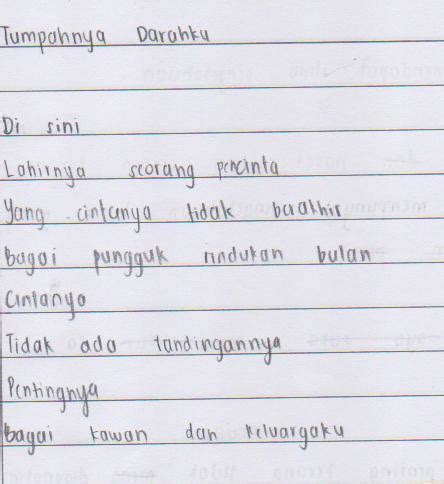 Tumpahnya Darahku
Di sini
Lahirnya seorang pencinta
Yang cintanya tidak berakhir
Bagai pungguk rindukan bulan
Cintanya
Tidak ada tandingannya
Pentingnya
Bagai kawan dan keluargaku